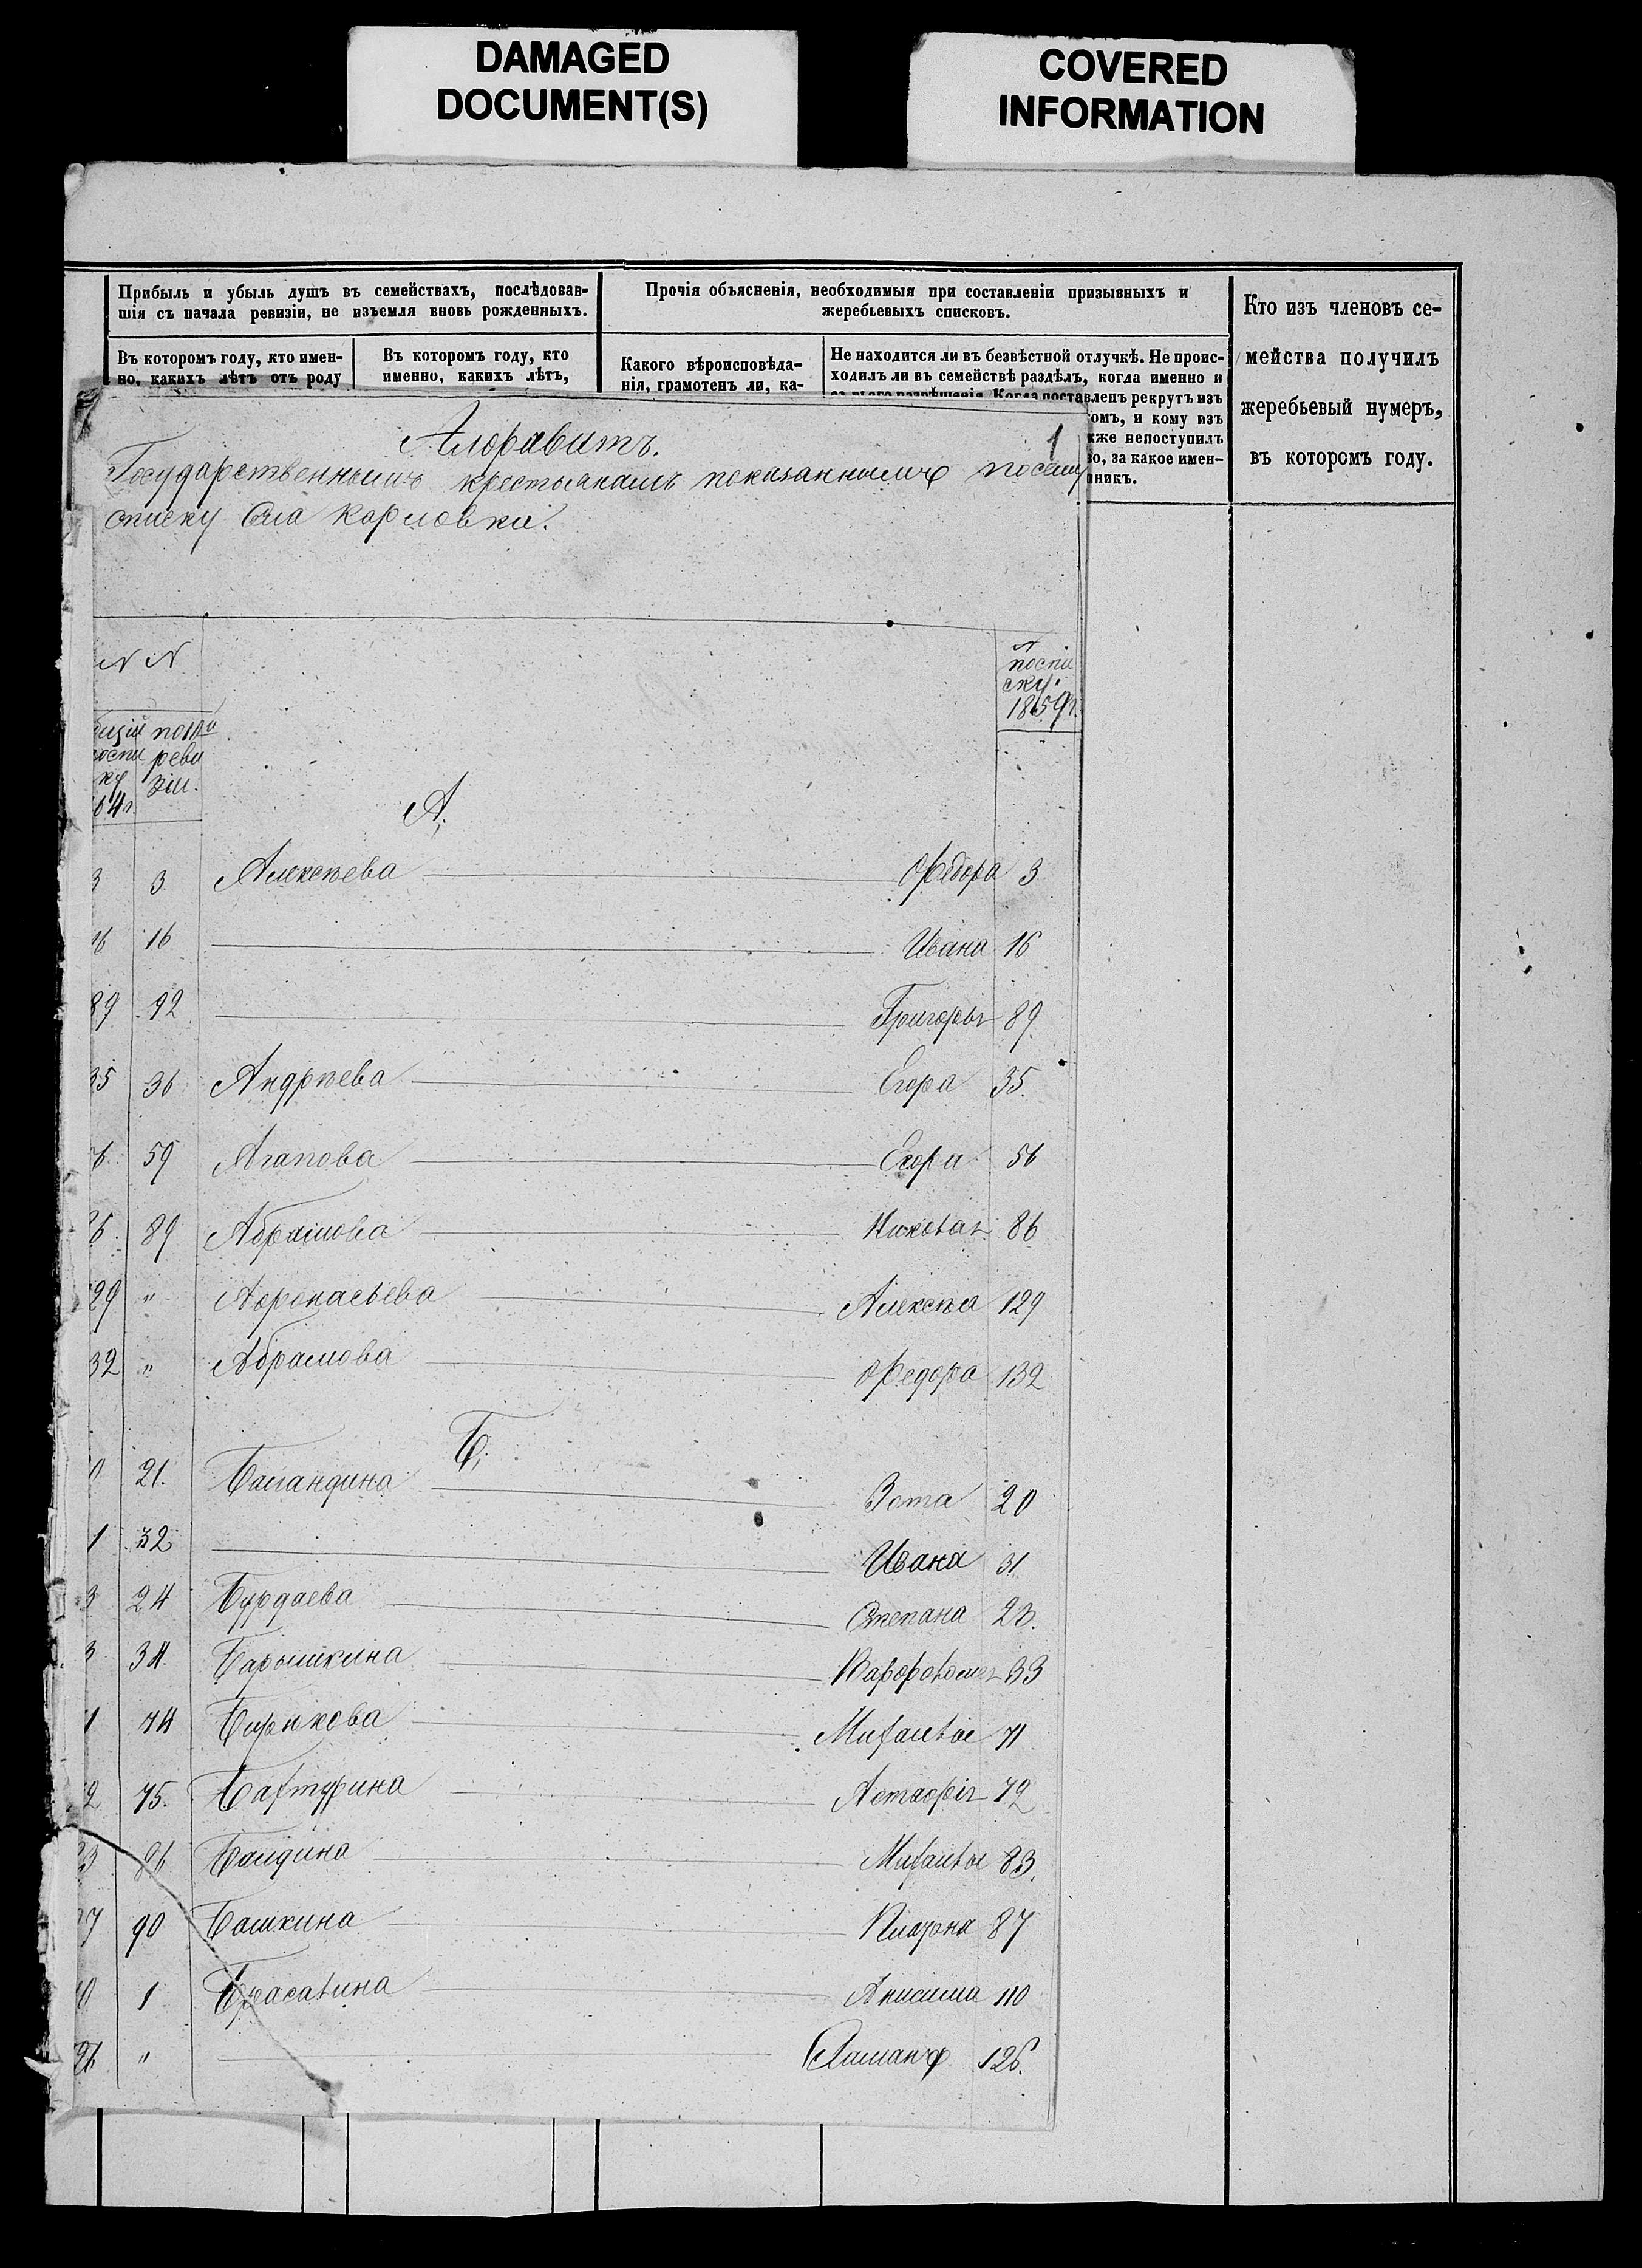 DAMAGED
DOCUMENT(S)
COVERED
INFORMATION
Прибыль и убыль душъ въ семействахъ, послѣдовав-
шія съ начала ревизіи, не изъемля вновь рожденныхъ.
Въ которомъ году, кто имен-
но, какихъ лѣтъ отъ роду
Въ которомъ году, кто
именно, какихъ лѣтъ,
Прочія объясненія, необходимыя при составленіи призывныхъ и
жеребьевыхъ списковъ.
Какого вѣроисповѣда-
нія, грамотенъ ли, ка-
Не находится ли въ безвѣстной отлучкѣ. Не проис-
ходилъ ли въ семействѣ раздѣлъ, когда именно и
съ чьего разрѣшенія. Когда поставленъ рекрутъ изъ
омъ, и кому изъ
кже непоступилъ
о, за какое имен-
никъ.
Кто изъ членовъ се-
мейства получилъ
жеребьевый нумеръ,
въ которомъ году.
Алфавитъ. 1
Государственнымъ крестьянамъ показаннымъ по сему
списку Села Карловки.
N N
по 10й
реви
зіи.
64 г.
N
по спи
ску
1859 г.
А.
3 3. Алексѣева Ѳедора 3
16 16 Ивана 16
89 92 Григорья 89.
35 36 Андрѣева Егора 35.
6 59 Агапова Егора 56
6. 89 Абрамова Николая 86
29 " Афонасьева Алексѣя 129
32 " Абрамова Федора 132
Б.
0 21. Баландина Зота 20
1 32 Ивана 31
3 24 Бурдаева Степана 23.
3 34. Барышкина Варфоломея 33
1 74 Бирюкова Михайлы 71
2 75. Бахтурина Астафія 72
3 86 Балдина Михайлы 83.
7 90 Башкина Пиѳона 87
0 1 Брасалина Анисима 110
26 " 126.